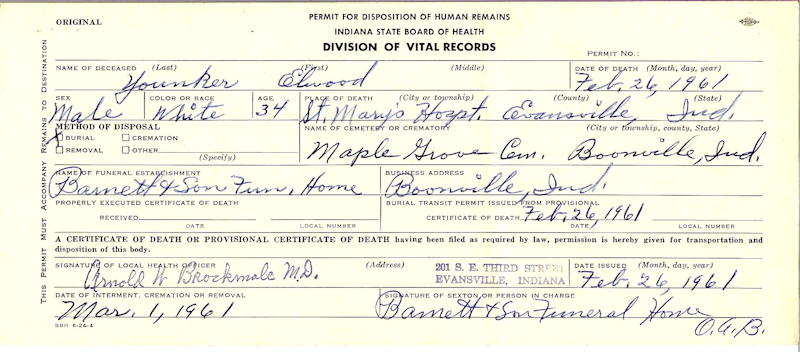 ORIGINAL
PERMIT FOR DISPOSITION OF HUMAN REMAINS
INDIANA STATE BOARD OF HEALTH
DIVISION OF VITAL RECORDS
PERMIT NO.:
THIS PERMIT MUST ACCOMPANY REMAINS TO DESTINATION
NAME OF DECEASED (Last) (First) (Middle) DATE OF DEATH (Month, day, year)
Younker Elwood Feb. 26, 1961
SEX COLOR OR RACE AGE PLACE OF DEATH (City or township) (County) (State)
Male White 34 St. Mary's Hospt. Evansville, Ind.
METHOD OF DISPOSAL NAME OF CEMETERY OR CREMATORY (City or township, county, State)
BURIAL CREMATION
REMOVAL OTHER
(Specify)
Maple Grove Cem. Boonville, Ind.
NAME OF FUNERAL ESTABLISHMENT BUSINESS ADDRESS
Barnett & Son Fun. Home Boonville, Ind.
PROPERLY EXECUTED CERTIFICATE OF DEATH BURIAL TRANSIT PERMIT ISSUED FROM PROVISIONAL
RECEIVED CERTIFICATE OF DEATH Feb. 26, 1961
DATE LOCAL NUMBER DATE LOCAL NUMBER
A CERTIFICATE OF DEATH OR PROVISIONAL CERTIFICATE OF DEATH having been filed as required by law, permission is hereby given for transportation and
disposition of this body.
SIGNATURE OF LOCAL HEALTH OFFICER (Address) 201 S. E. THIRD STREET DATE ISSUED (Month, day, year)
Arnold W Brockmole M.D. EVANSVILLE, INDIANA Feb. 26, 1961
DATE OF INTERMENT, CREMATION OR REMOVAL SIGNATURE OF SEXTON OR PERSON IN CHARGE
Mar. 1, 1961 Barnett & Son Funeral Home
O.A.B.
SBH 6-24-4